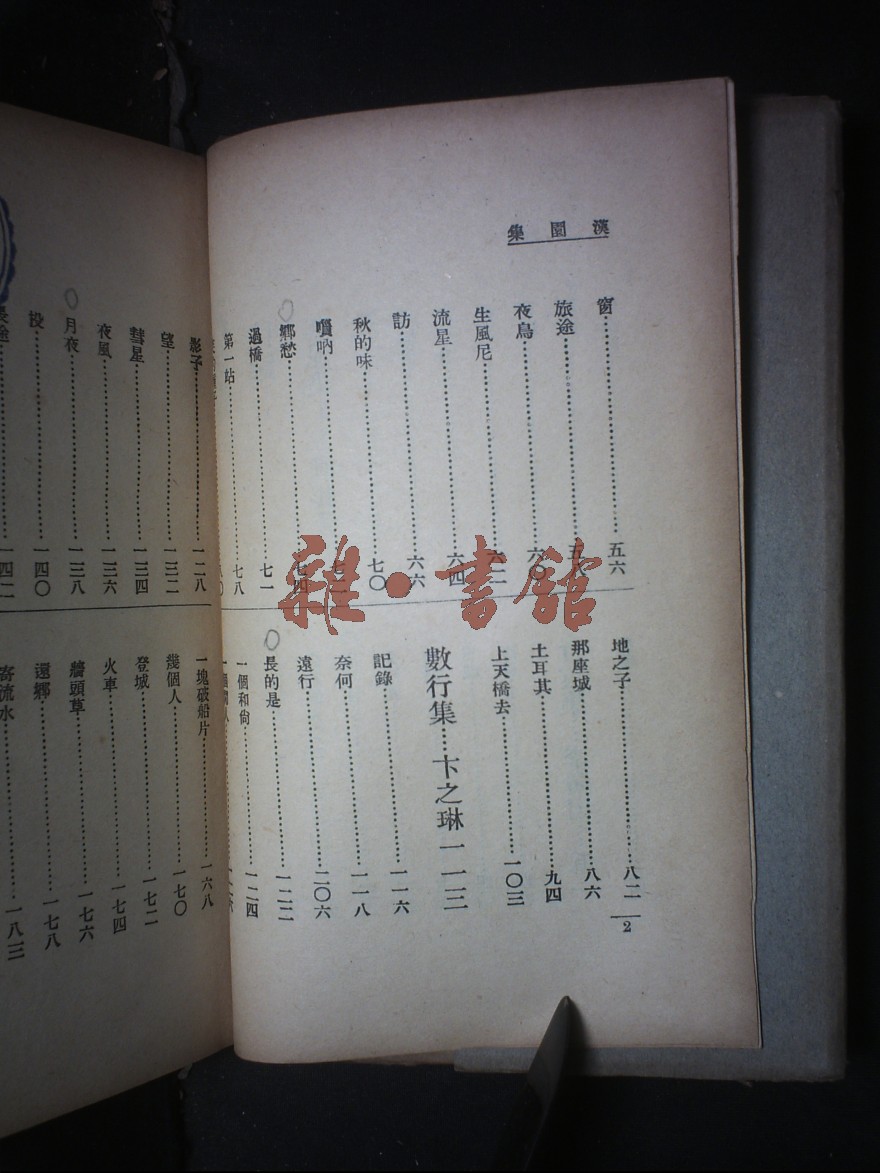 漢園集
窗 五六
旅途
夜鳥 六〇
生風尼
流星 六四
訪 六六
秋的味 七〇
嗩吶
鄉愁 七四
過橋 七一
第一站 七八
地之子 八二
那座城 八六
土耳其 九四
上天橋去 一〇三
數行集…卞之琳 一一三
記錄 一一六
奈何 一一八
遠行 二〇六
長的是 一二二
一個和尚 一二四
2
影子 一二八
望 一三二
彗星 一三四
夜風 一三六
月夜 一三八
投 一四〇
長途 一四二
一塊破船片 一六八
幾個人 一七〇
登城 一七二
火車 一七四
牆頭草 一七六
還鄉 一七八
寄流水 一八三
雜·書館